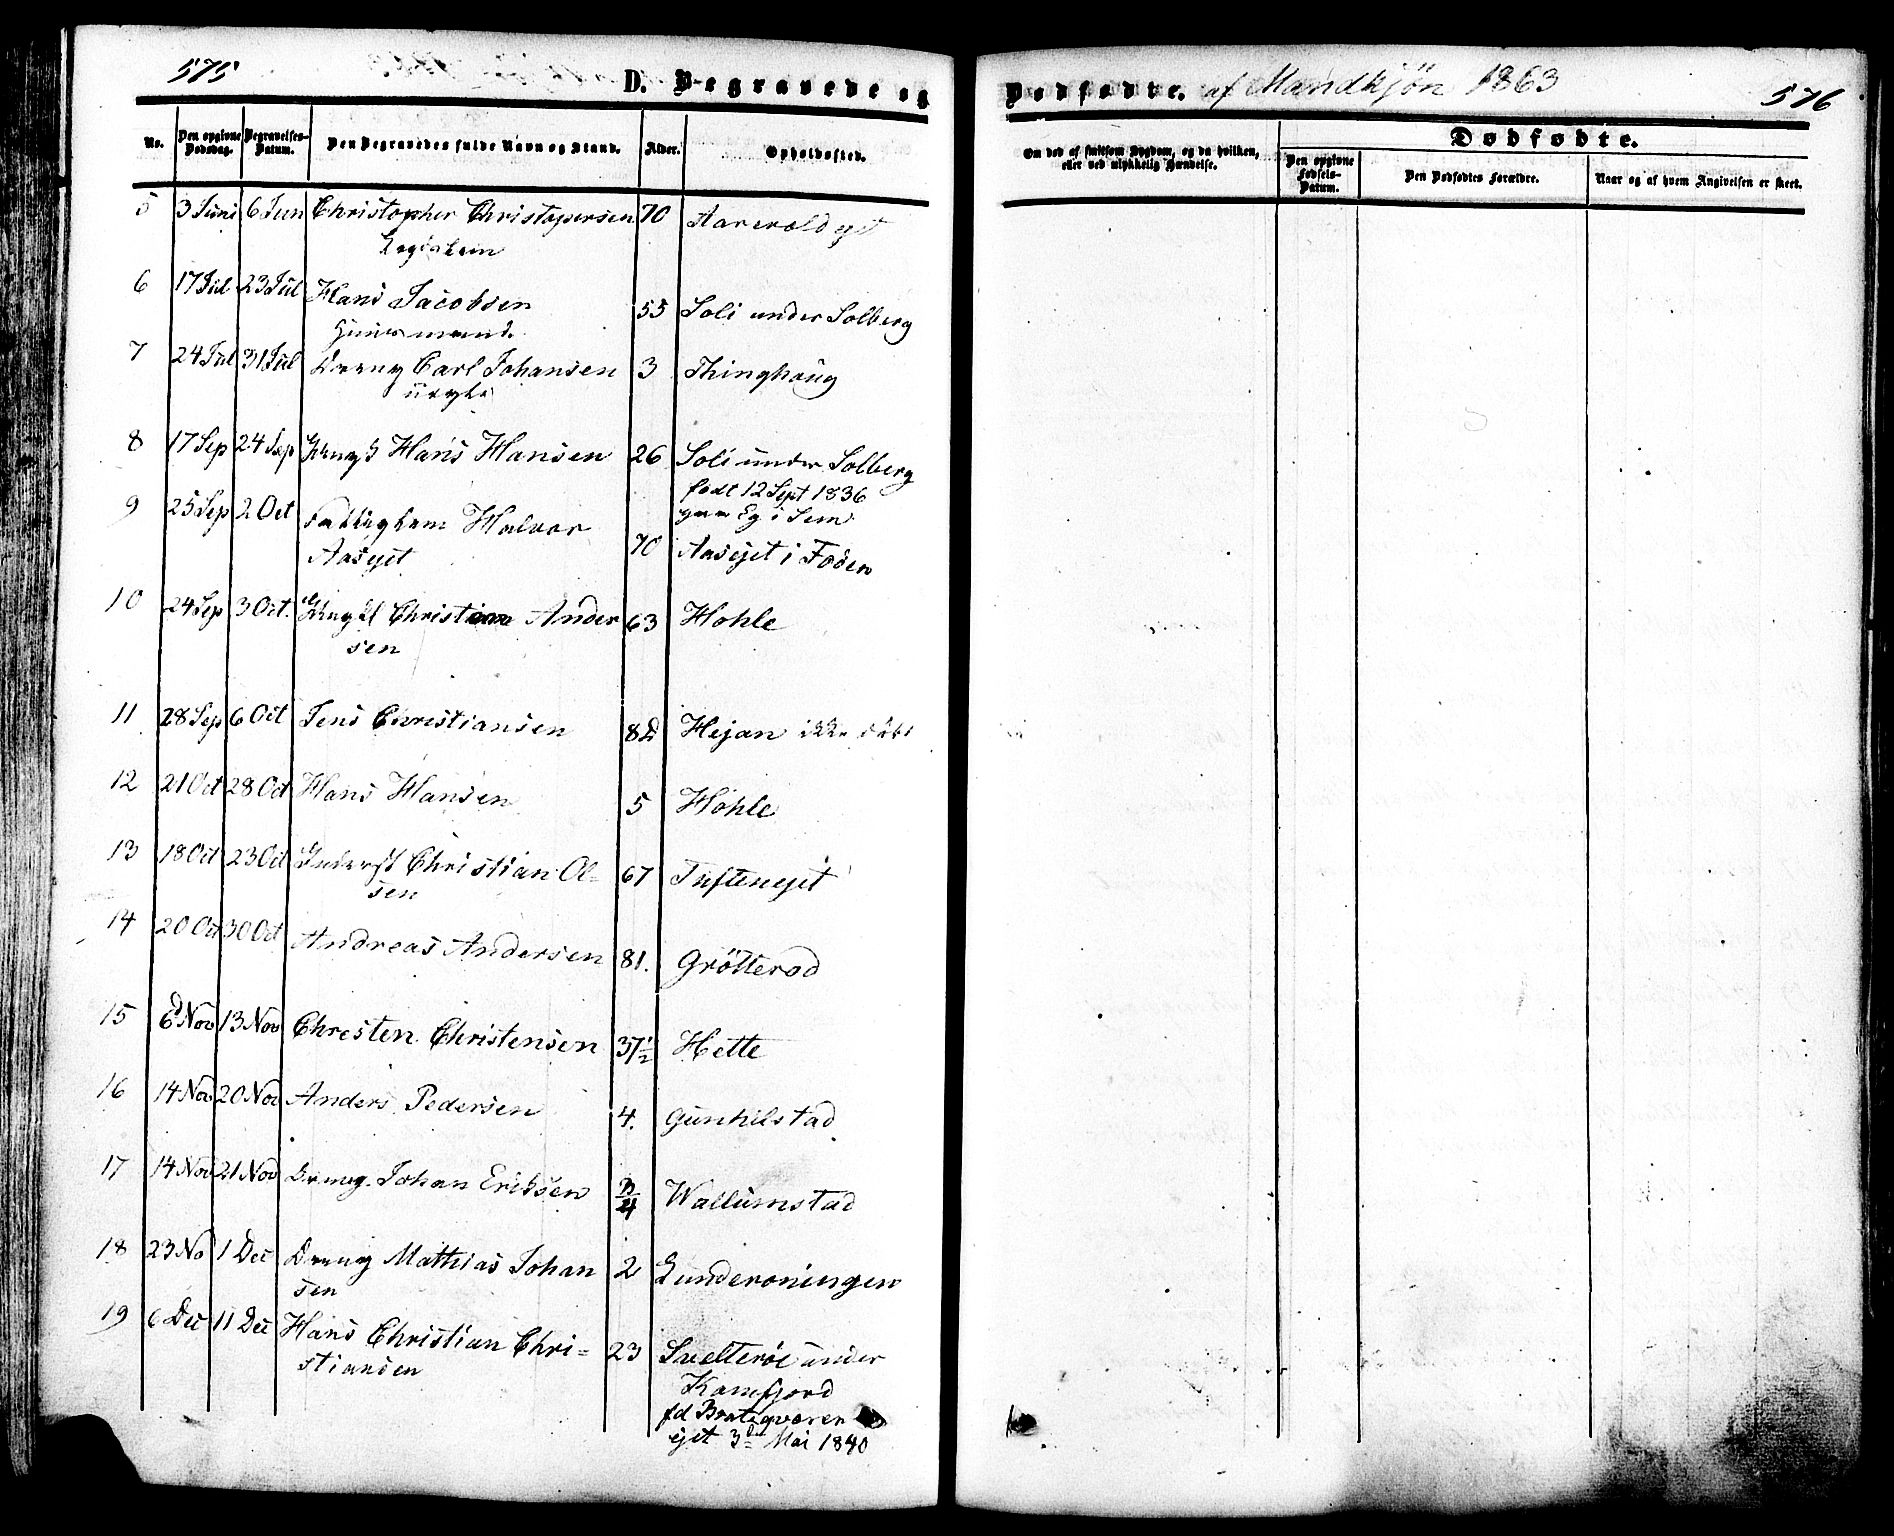 575
D. Begravede og
No.
Den opgivne Dødsdag.
Begravelses-Datum.
Den Begravedes fulde Navn og Stand.
Alder.
Opholdssted.
5 3 Juni 6 Jun Christopher Christophersen 70
Logiskem
6 17 Jul 23 Jul Hans Jacobsen 55 Soli under Solberg
Huusmand
7 24 Jul 31 Jul Dreng Carl Johansen 3 Thinghaug
8 17 Sep 24 Sep Ungk Hans Hansen 26 Soli under Solberg
født 12 Sept 1836
paa Eg i Sem
9 25 Sep 2 Oct Fattiglem Halvor
Aasejet 70 Aasejet i Foden
10 24 Sep 3 Oct. Christian Ander
sen 63 Hohle
11 28 Sep 6 Oct Jens Christiansen 8 D Hejan ikke døbt
12 21 Oct 28 Oct Hans Hansen 5 Hohle
13 18 Oct 23 Oct Inderst Christian Ol-
sen 67 Tuftenejet
14 20 Oct 30 Oct Andreas Andersen 81. Grötterød
15 6 Nov 13 Nov Christen Christensen 37½ Hette
16 14 Nov 20 Nov Anders Pedersen 4. Gunhilstad
17 14 Nov 21 Nov Dreng Johan Eriksen 3/4 Wallumstad
18 23 No 1 Dec Dreng Mathias Johan
sen 2 Gunderoningen
19 6 Dec 11 Dec Hans Christian Chri=
stiansen 23 Svelteröe under
Kamfjord
fd Bratqværn
ejet 3die Mai 1840
Dødfødte. af Mandkjön 1863
576
Om død af smitsom Sygdom, og da hvilken,
eller ved ulykkelig Hændelse.
Dødfødte.
Den opgivne Fødsels-Datum.
Den Dødfødtes Forældre.
Naar og af hvem Angivelsen er skeet.